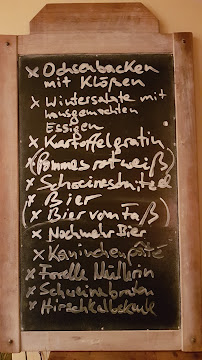 x Ochsenbacken
mit Klößen
x Wintersalate mit
hausgemachten
Essigen
x Kartoffelgratin
(Pommes rot weiß)
x Schweineschnitzel
x Bier
(x Bier vom Faß)
x Nochmehr Bier
x Kaninchenpâté
x Forelle Müllerin
x Schweinebraten
x Hirschkalbskeule